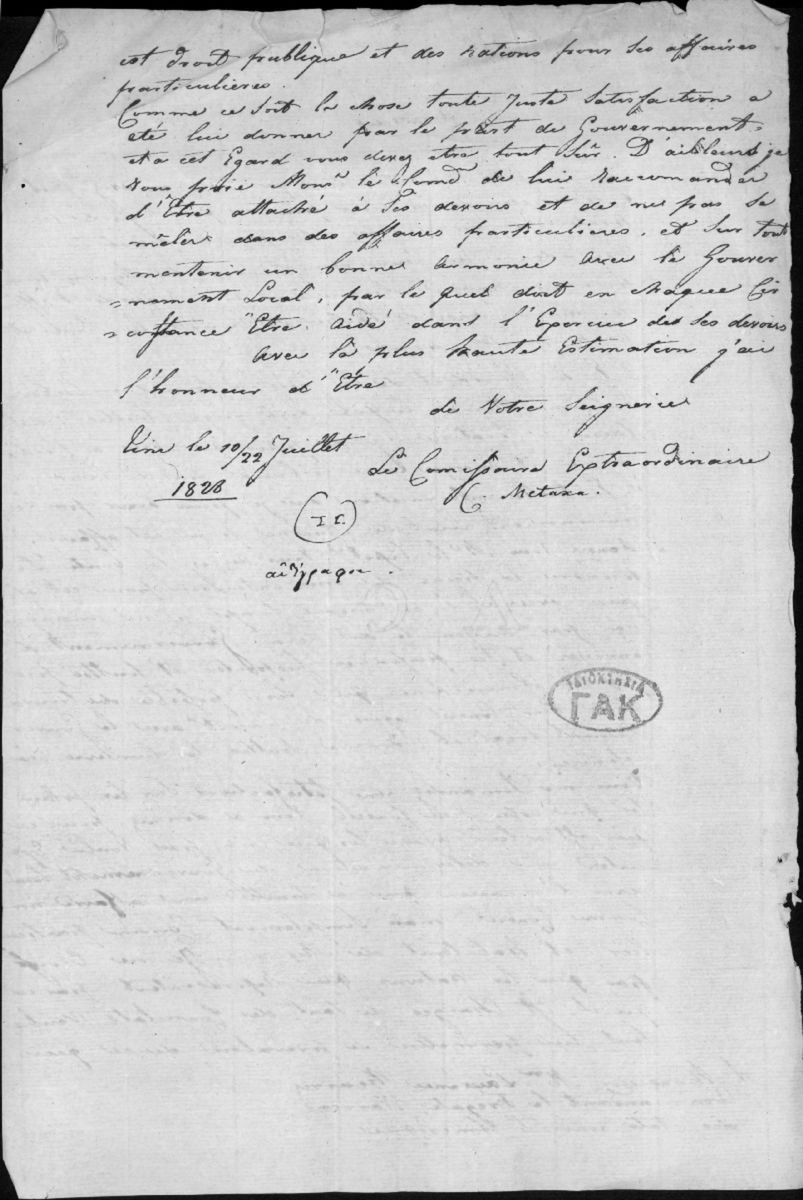 est droit publique et des nations pour ses affaires
particulieres.
Comme ce soit la chose toute Juste Satisfaction a
eté lui donner par le part de Gouvernement,
et a cet Egard vous devez etre tout Sûr. D'ailleurs je
vous prie Monsr le Comd. de lui raccomander
d'Être attaché à Ses devoirs et de ne pas se
mêler dans des affaires particulieres, et sur tout
mentenir un bonne armonie avec le Gouver
=nement Local, par le quel doit en chaque Cir
=constance Etre aidé dans l'Exercice de ses devoirs
Avec la plus haute Estimation j'ai
l'honneur d'Être
de Votre Seignerie
Tine le 10/22 Juillet
1828
Le Comissaire Extraordinaire
C. Metaxa.
ἀντίγραφον.
ΙΔΙΟΚΤΗΣΙΑ
ΓΑΚ